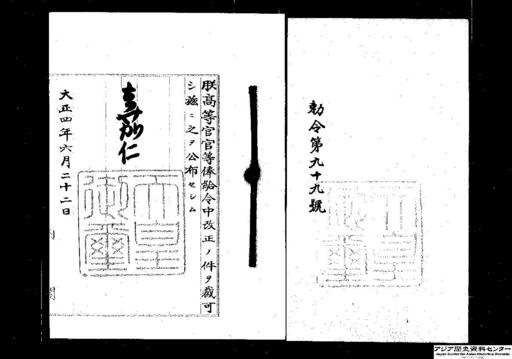 勅令第九十九號
朕高等官官等俸給令中改正ノ件ヲ裁可
シ茲ニ之ヲ公布セシム
嘉仁
天皇御璽
大正四年六月二十二日
内閣
アジア歴史資料センター
Japan Center for Asian Historical Records